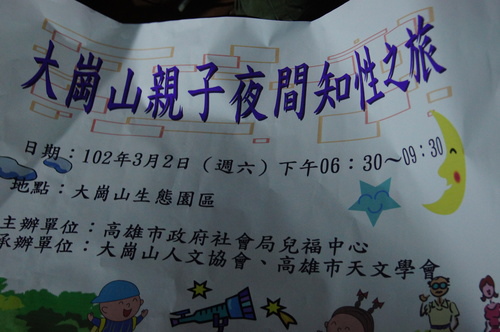 大崗山親子夜間知性之旅
日期：102年3月2日（週六）下午06：30～09：30
地點：大崗山生態園區
主辦單位：高雄市政府社會局兒福中心
承辦單位：大崗山人文協會、高雄市天文學會